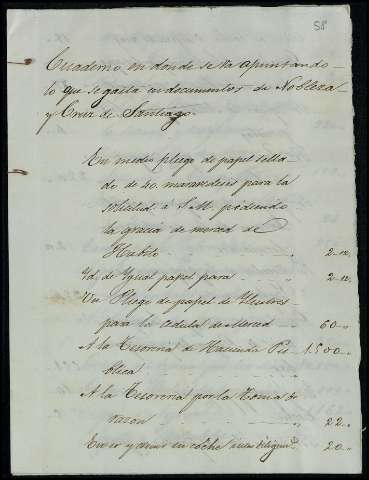 58
Cuaderno en donde se va apuntando
lo que se gasta en documentos de Nobleza
y Cruz de Santiago.
En medio pliego de papel sella
do de 40. maravedises para la
solicitud a S.M. pidiendo
la gracia de merced de
Habito 2-12.
Yd. de Ygual papel para 2-12.
Un Pliego de papel de Ylustres
para la cedula de Merced 60-
A la Tesoreria de Hacienda Pu- 1.500-
blica
A la Tesoreria por la toma de
razon 22-
En ir y venir en coche 20-